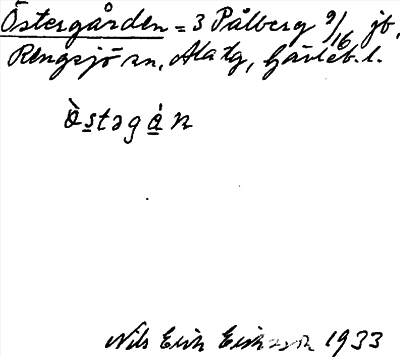 Östergården = 3 Pålberg 9/16 jb,
Rengsjö sn, Ala tg, Gävleb. l.
òstəgȧn
Nils Erik Eriksson 1933